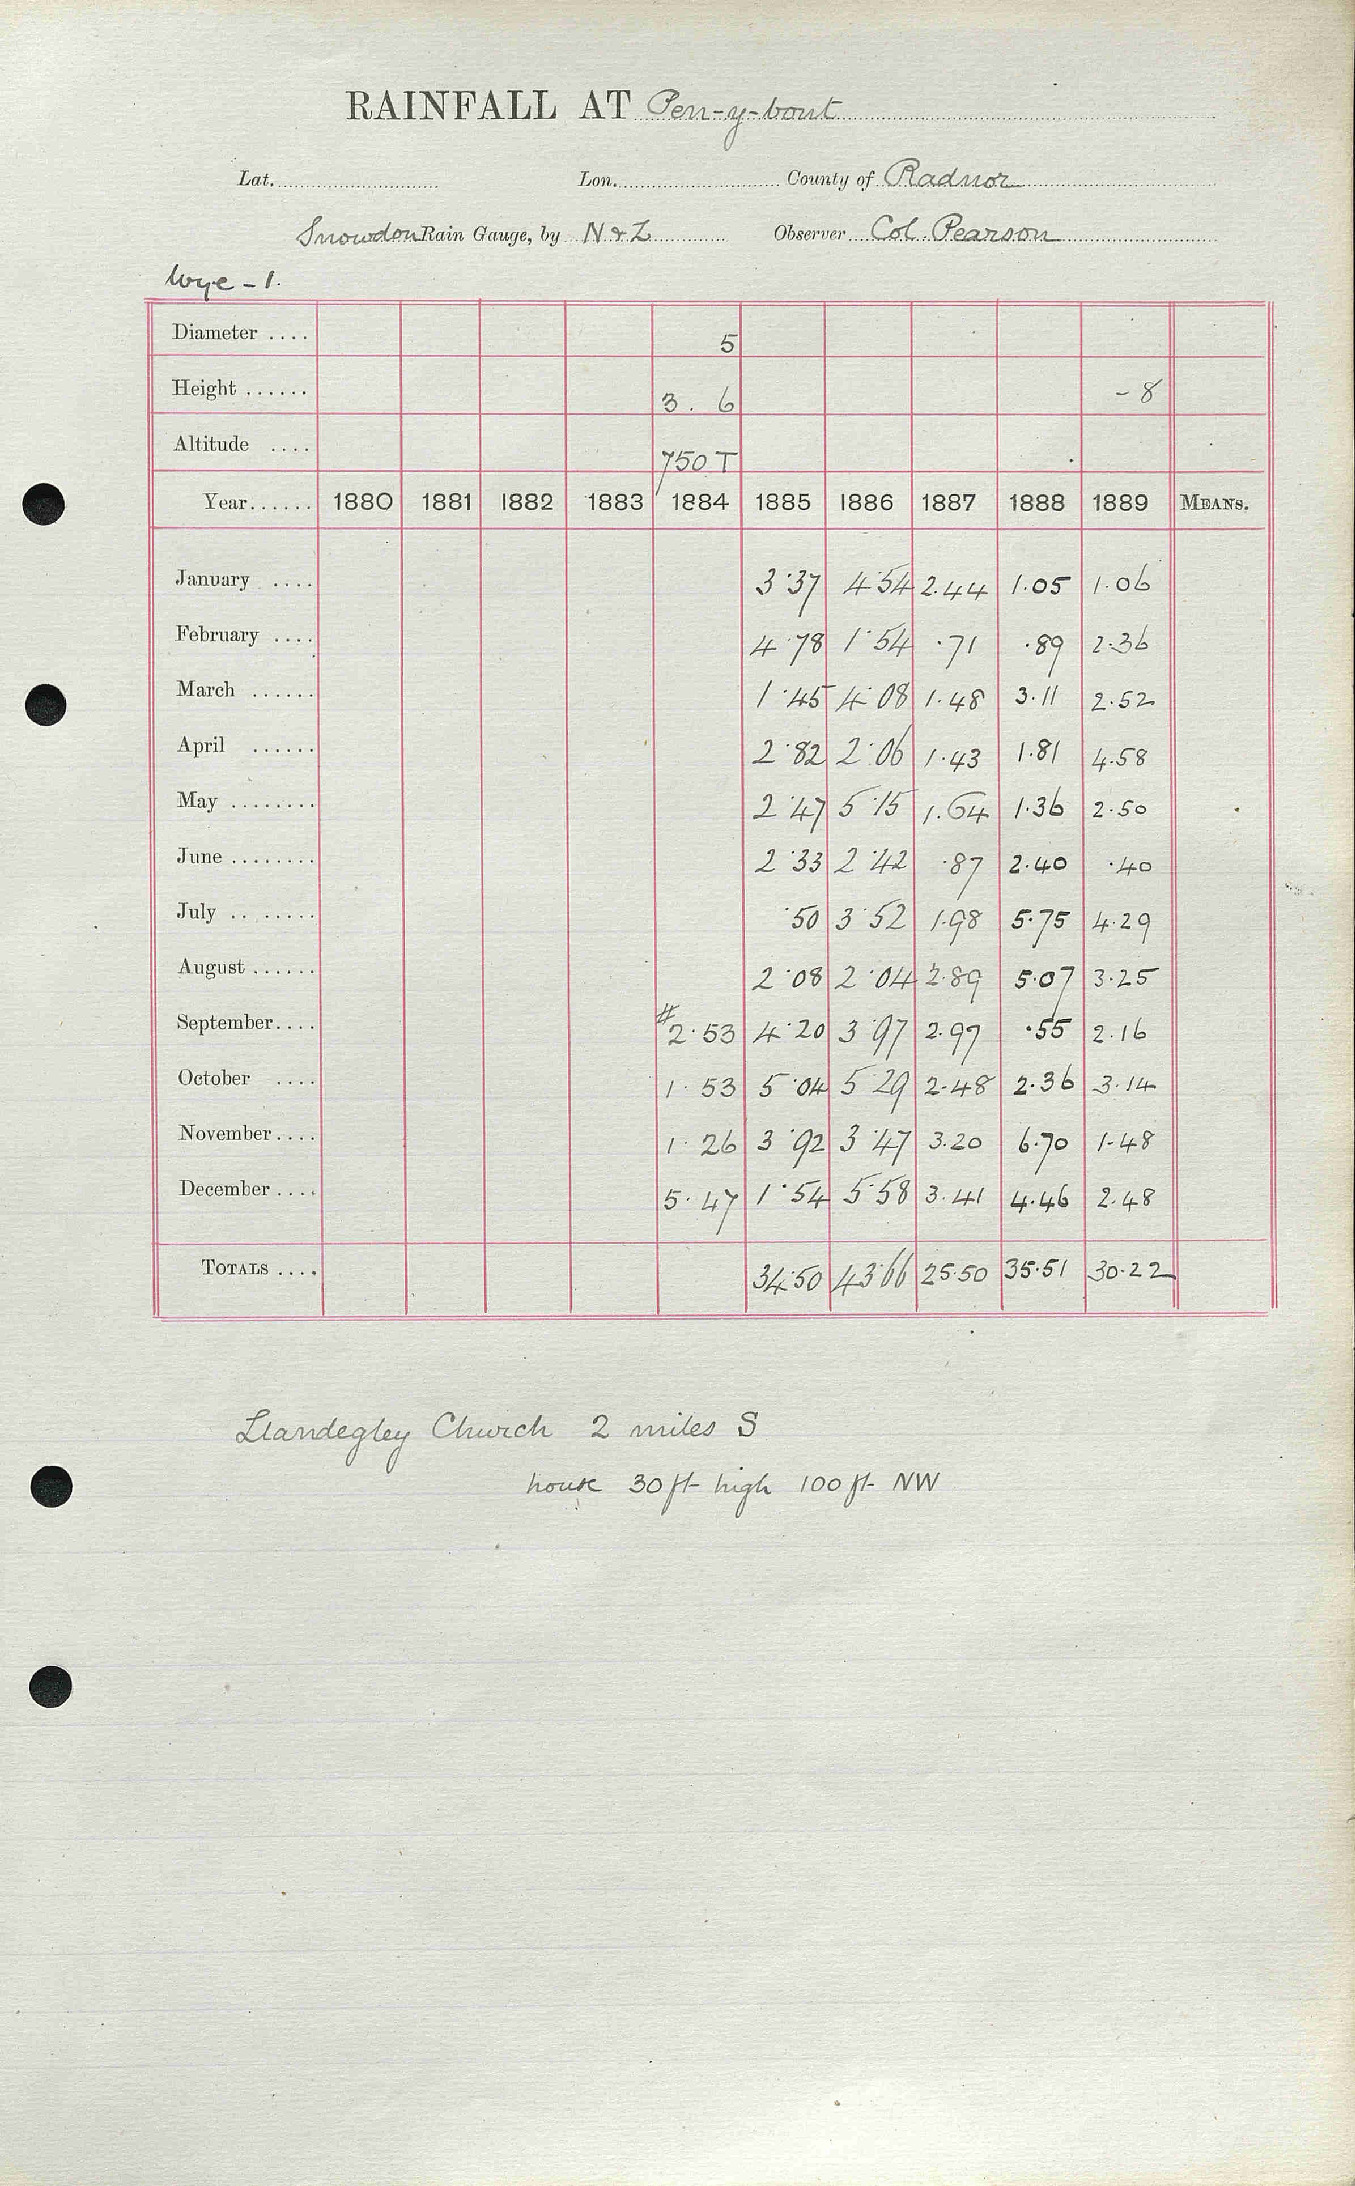 RAINFALL AT Pen-y-bont
Lat. Lon. County of Radnor
Snowdon Rain Gauge, by N & Z Observer Col Pearson
Wye - 1.
Diameter .... 5
Height ...... 3. 6 - 8
Altitude .... 750 T
Year...... 1880 1881 1882 1883 1884 1885 1886 1887 1888 1889 MEANS.
January .... 3·37 4·54 2.44 1.05 1.06
February .... 4·78 1·54 .71 .89 2.36
March ...... 1·45 4·08 1.48 3.11 2.52
April ...... 2·82 2·06 1.43 1.81 4.58
May ........ 2·47 5·15 1.64 1.36 2.50
June ........ 2·33 2·42 .87 2.40 .40
July ........ ·50 3·52 1.98 5.75 4.29
August ...... 2·08 2·04 2.89 5.07 3.25
September.... #2·53 4·20 3·97 2.97 .55 2.16
October .... 1·53 5·04 5·29 2.48 2.36 3.14
November.... 1·26 3·92 3·47 3.20 6.70 1.48
December.... 5·47 1·54 5·58 3.41 4.46 2.48
TOTALS .... 34·50 43·66 25.50 35.51 30.22
Llandegley Church 2 miles S
house 30 ft high 100 ft NW